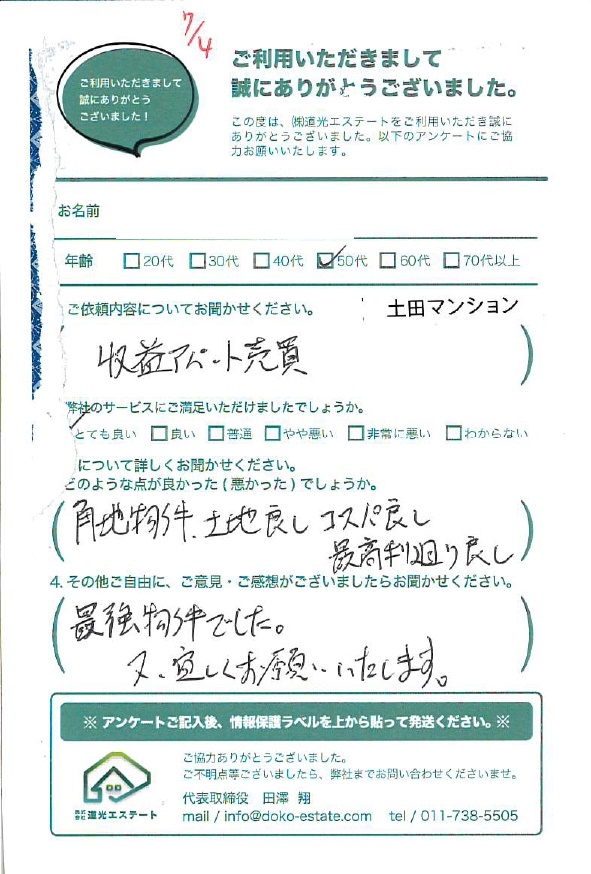 7/4
ご利用いただきまして
誠にありがとう
ございました！
ご利用いただきまして
誠にありがとうございました。
この度は、㈱道光エステートをご利用いただき誠に
ありがとうございました。以下のアンケートにご協
力お願いいたします。
お名前
年齢 □20代 □30代 □40代 ☑50代 □60代 □70代以上
ご依頼内容についてお聞かせください。 土田マンション
(収益アパート売買)
弊社のサービスにご満足いただけましたでしょうか。
とても良い □良い □普通 □やや悪い □非常に悪い □わからない
について詳しくお聞かせください。
どのような点が良かった(悪かった)でしょうか。
(角地物件、土地良し コスパ良し
最高利廻り良し)
4. その他ご自由に、ご意見・ご感想がございましたらお聞かせください。
(最強物件でした。
又、宜しくお願いいたします。)
※ アンケートご記入後、情報保護ラベルを上から貼って発送ください。※
ご協力ありがとうございました。
ご不明点等ございましたら、弊社までお問い合わせくださいませ。
代表取締役 田澤 翔
株式会社道光エステート
mail / info@doko-estate.com tel / 011-738-5505